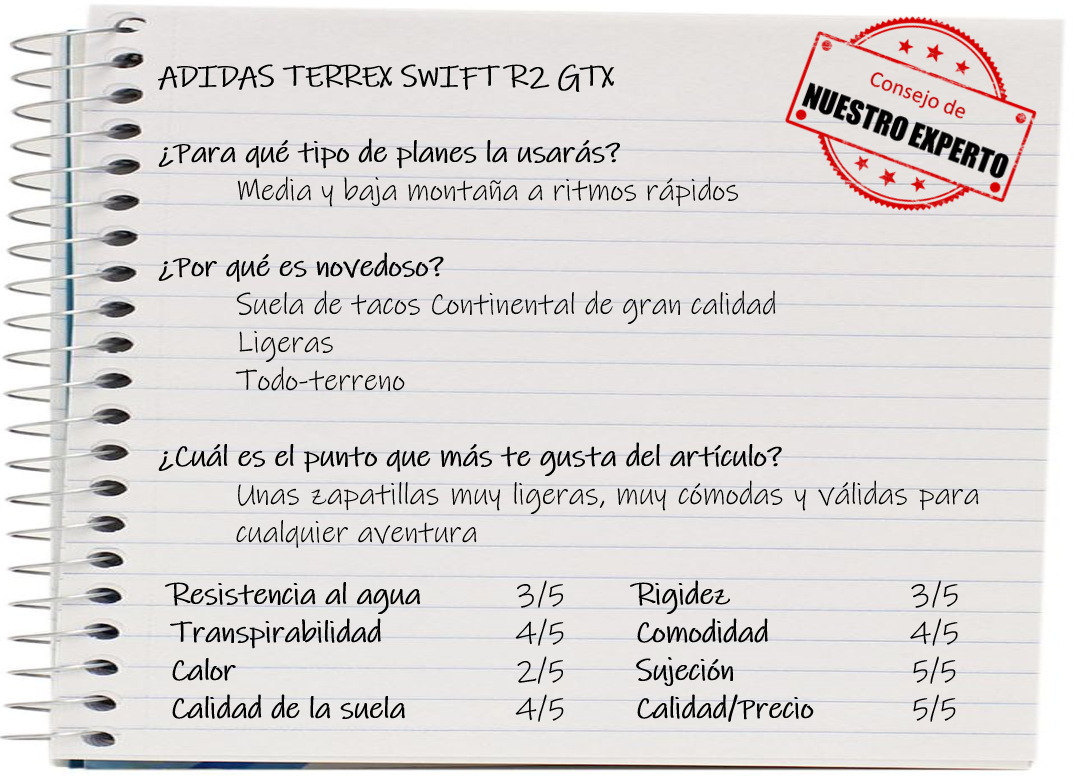 ADIDAS TERREX SWIFT R2 GTX
Consejo de
NUESTRO EXPERTO
¿Para qué tipo de planes la usarás?
Media y baja montaña a ritmos rápidos
¿Por qué es novedoso?
Suela de tacos Continental de gran calidad
Ligeras
Todo-terreno
¿Cuál es el punto que más te gusta del artículo?
Unas zapatillas muy ligeras, muy cómodas y válidas para
cualquier aventura
Resistencia al agua 3/5 Rigidez 3/5
Transpirabilidad 4/5 Comodidad 4/5
Calor 2/5 Sujeción 5/5
Calidad de la suela 4/5 Calidad/Precio 5/5